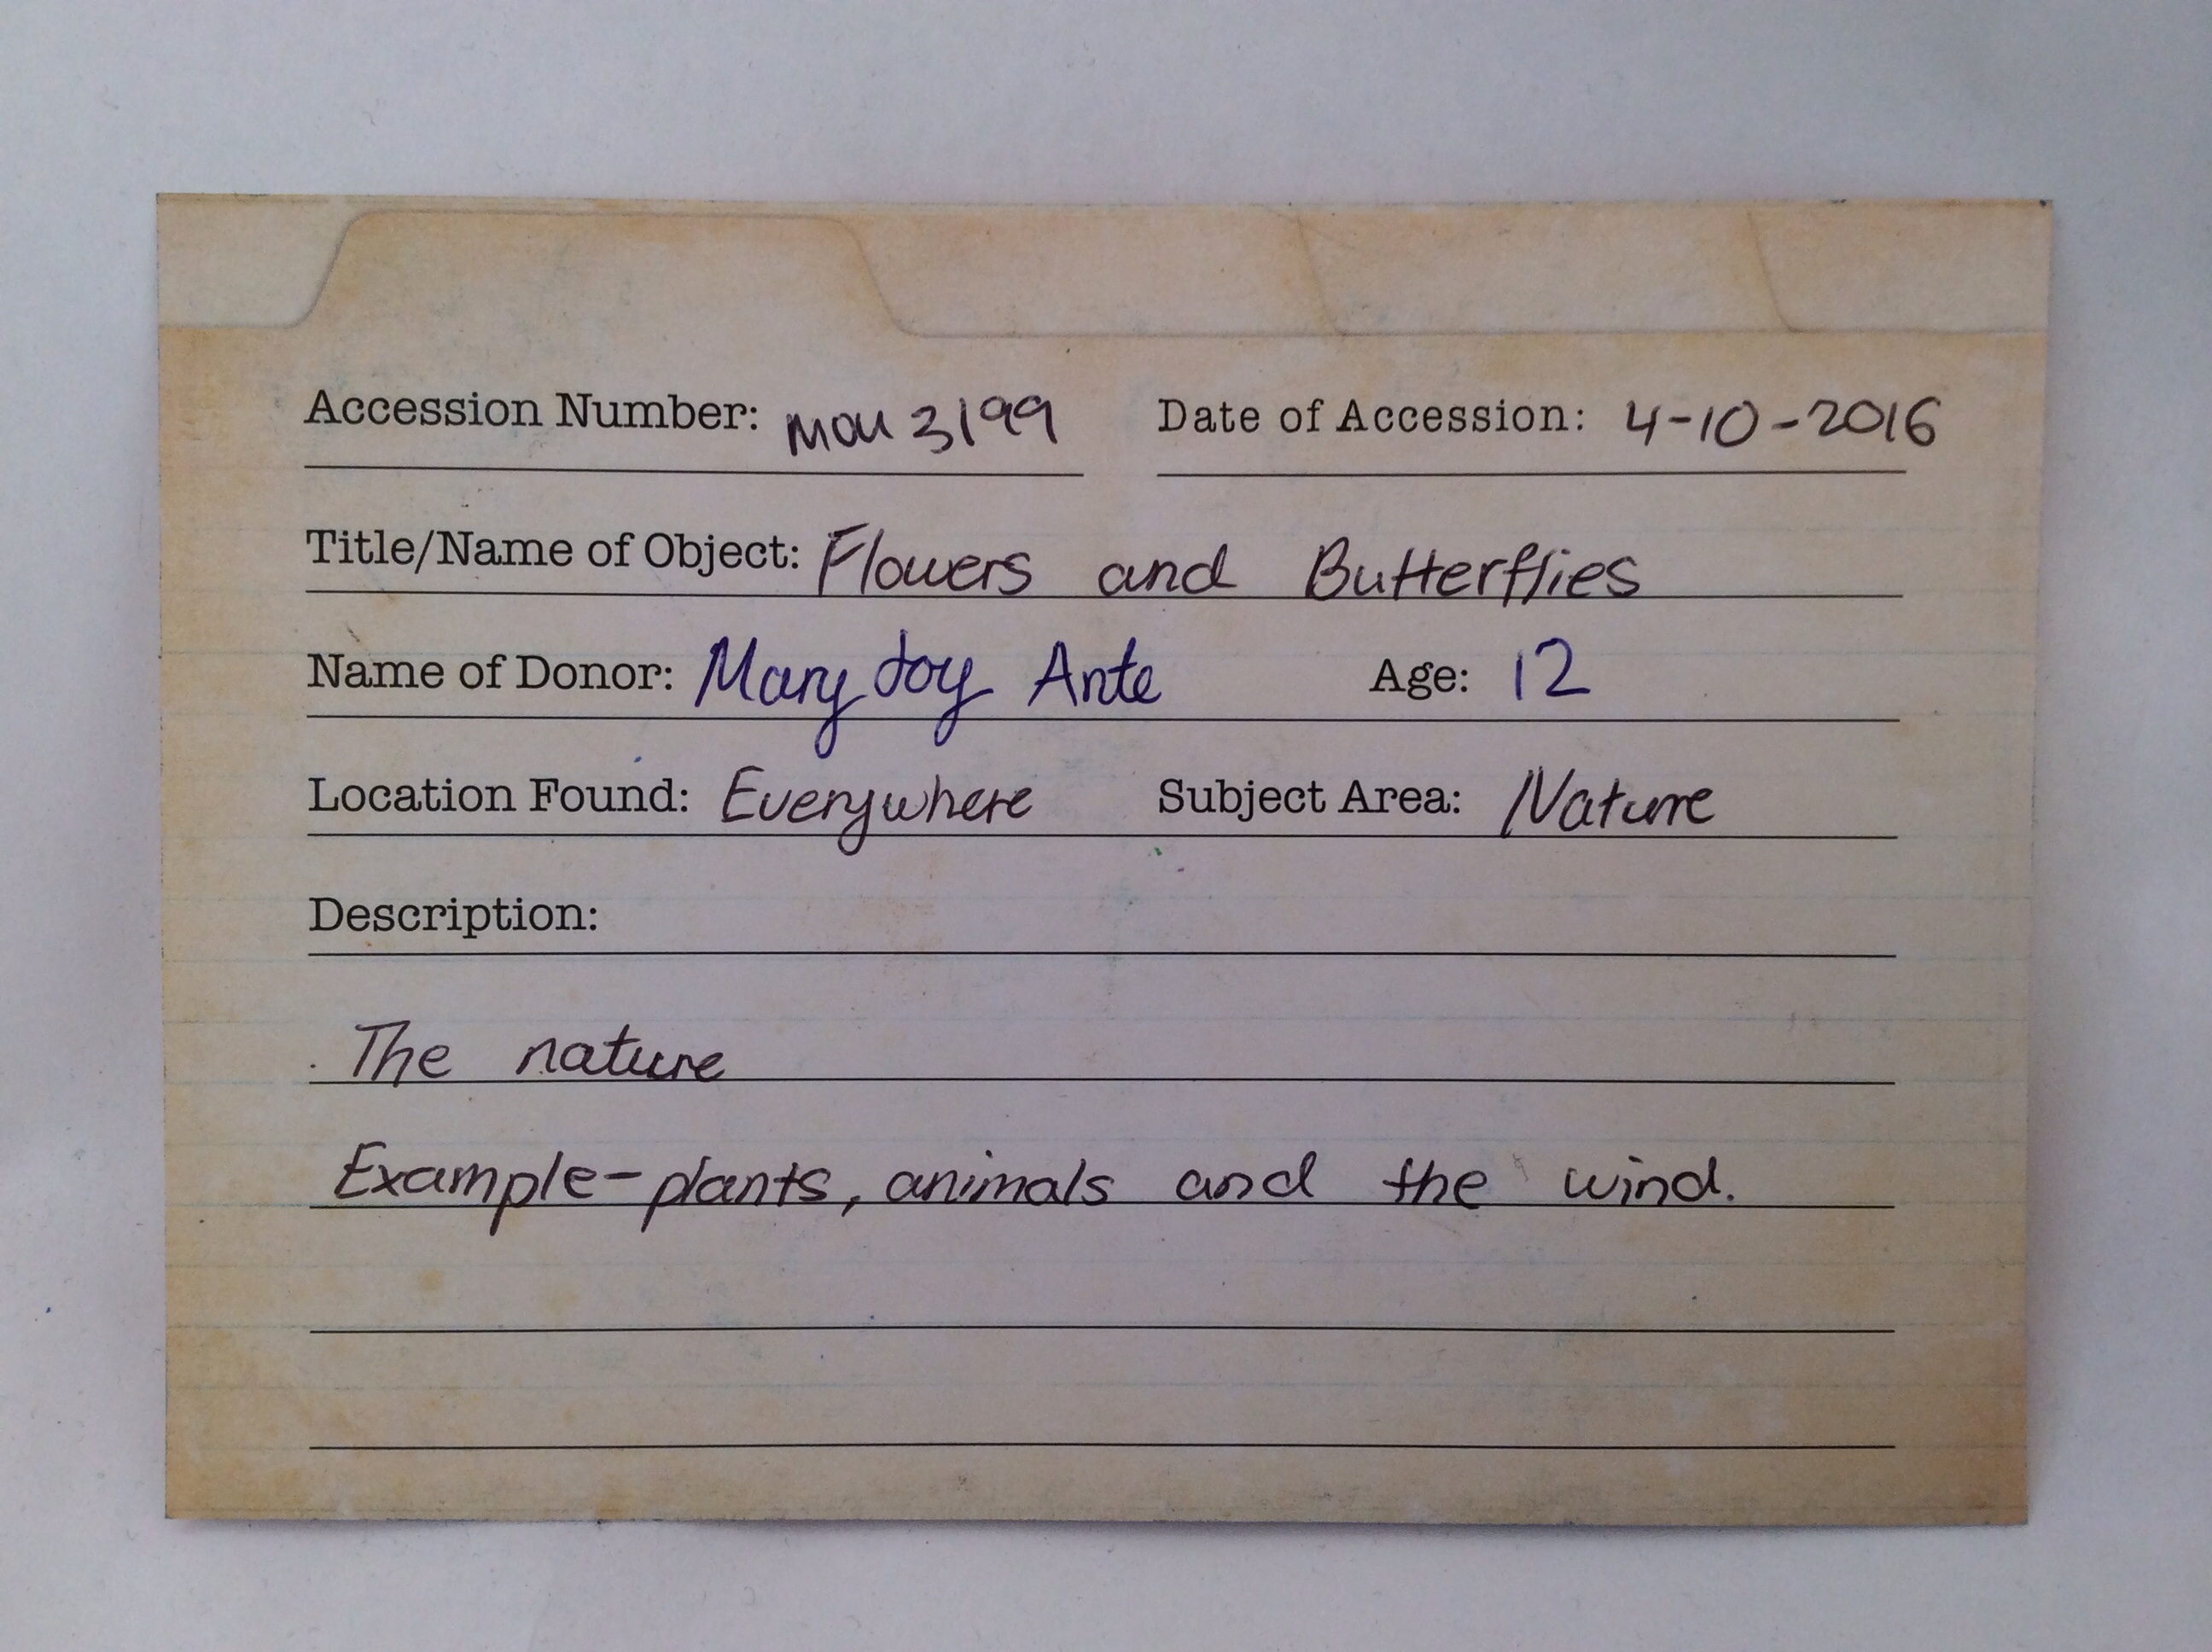 Accession Number: MOU 3199 Date of Accession: 4-10-2016
Title/Name of Object: Flowers and Butterflies
Name of Donor: Mary Joy Ante Age: 12
Location Found: Everywhere Subject Area: Nature
Description:
The nature
Example-plants, animals and the wind.